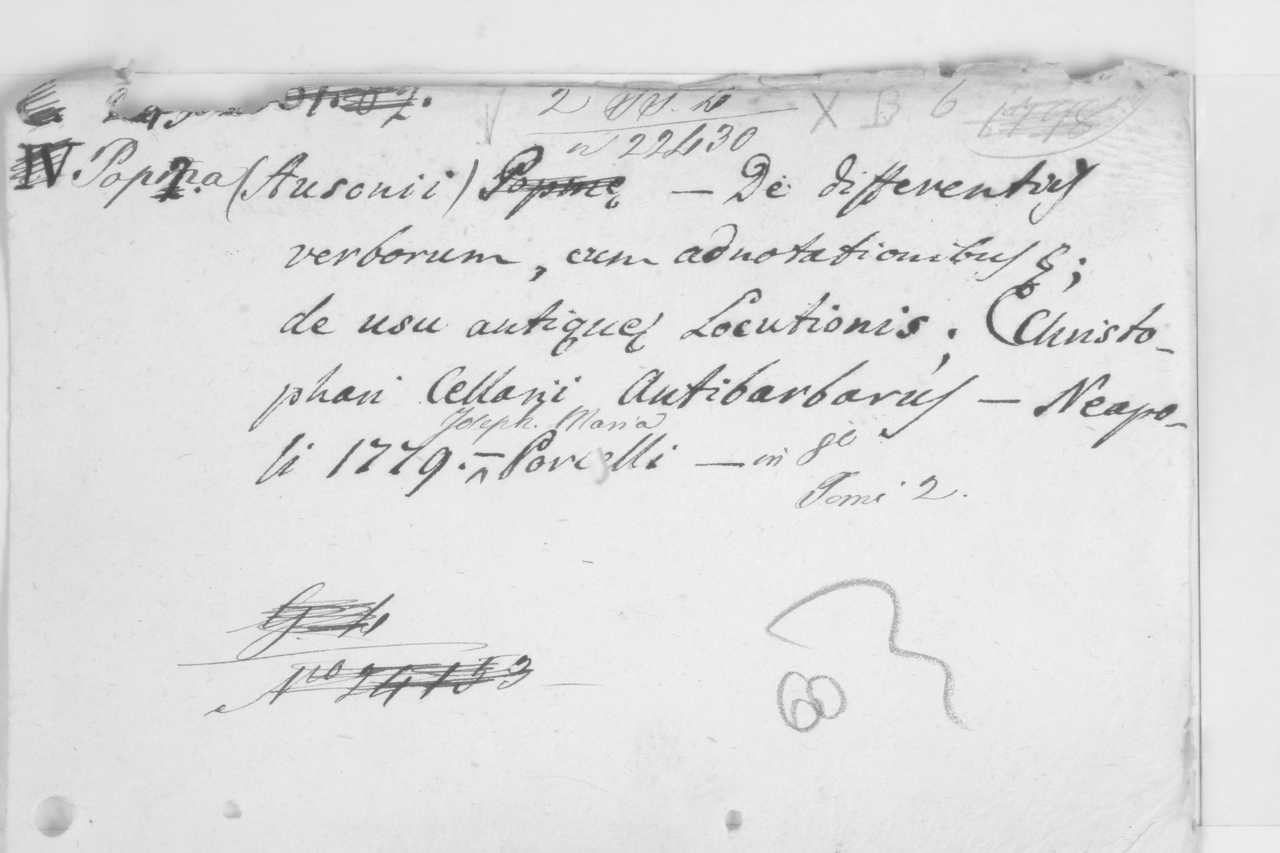 2 X B 6
n 22430
IV. Popma (Ausonii) Popmę — De differentiis
verborum, cum adnotationibus &;
de usu antiquę Locutionis; Christo-
phari Cellarii Antibarbarus — Neapo-
Joseph. Maria
li 1779. — Porcelli — in 8o
Tomi 2.
Nro 24153
60